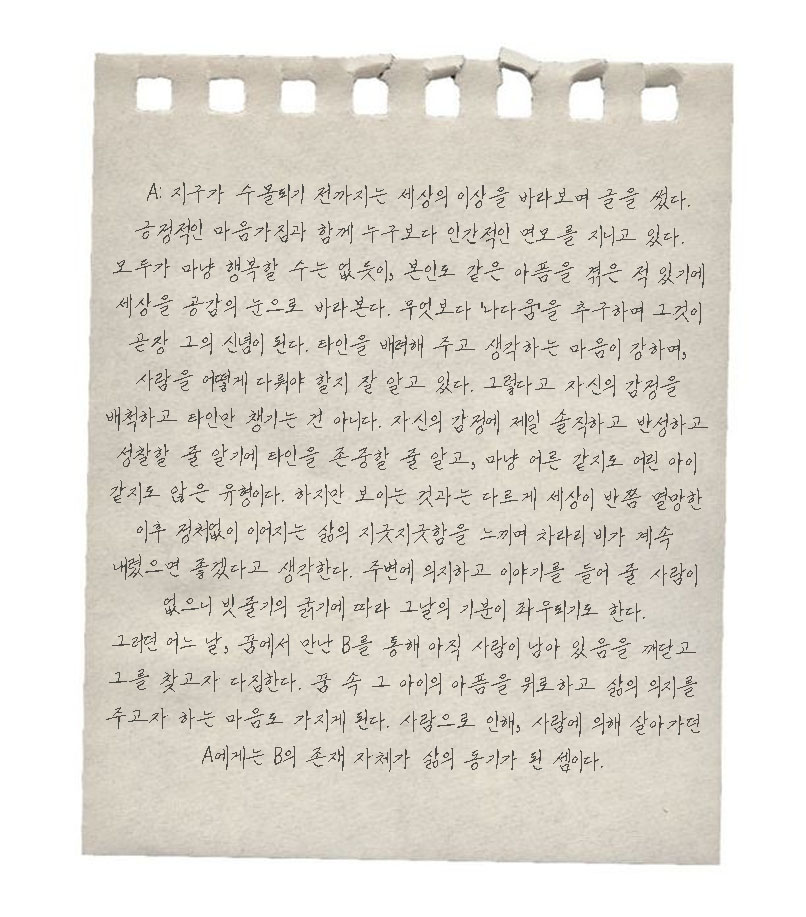 A: 지구가 수몰되기 전까지는 세상의 이상을 바라보며 글을 썼다.
긍정적인 마음가짐과 함께 누구보다 인간적인 면모를 지니고 있다.
모두가 마냥 행복할 수는 없듯이, 본인도 같은 아픔을 겪은 적 있기에
세상을 공감의 눈으로 바라본다. 무엇보다 '나다움'을 추구하며 그것이
곧장 그의 신념이 된다. 타인을 배려해 주고 생각하는 마음이 강하며,
사람을 어떻게 다뤄야 할지 잘 알고 있다. 그렇다고 자신의 감정을
배척하고 타인만 챙기는 건 아니다. 자신의 감정에 제일 솔직하고 반성하고
성찰할 줄 알기에 타인을 존중할 줄 알고, 마냥 어른 같지도 어린 아이
같지도 않은 유형이다. 하지만 보이는 것과는 다르게 세상이 반쯤 멸망한
이후 정처없이 이어지는 삶의 지긋지긋함을 느끼며 차라리 비가 계속
내렸으면 좋겠다고 생각한다. 주변에 의지하고 이야기를 들어 줄 사람이
없으니 빗줄기의 굵기에 따라 그날의 기분이 좌우되기도 한다.
그러던 어느 날, 꿈에서 만난 B를 통해 아직 사람이 남아 있음을 깨닫고
그를 찾고자 다짐한다. 꿈 속 그 아이의 아픔을 위로하고 삶의 의지를
주고자 하는 마음도 가지게 된다. 사람으로 인해, 사람에 의해 살아가던
A에게는 B의 존재 자체가 삶의 동기가 된 셈이다.